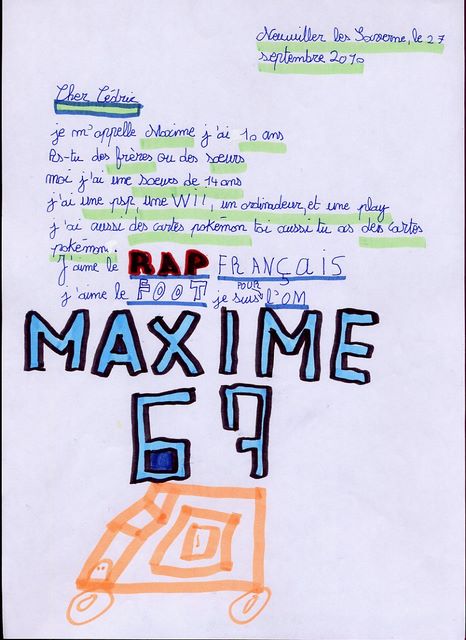 Neuwiller les Saverne, le 27
septembre 2010
Cher Cédric
je m'appelle Maxime j'ai 10 ans
As-tu des frères ou des sœurs
moi j'ai une soeurs de 14 ans
j'ai une psp, une WII, un ordinadeur, et une play
j'ai aussi des cartes pokémon toi aussi tu as des cartes
pokémon.
J'aime le RAP FRANÇAIS
j'aime le FOOT je suis POUR l'OM
MAXIME
67